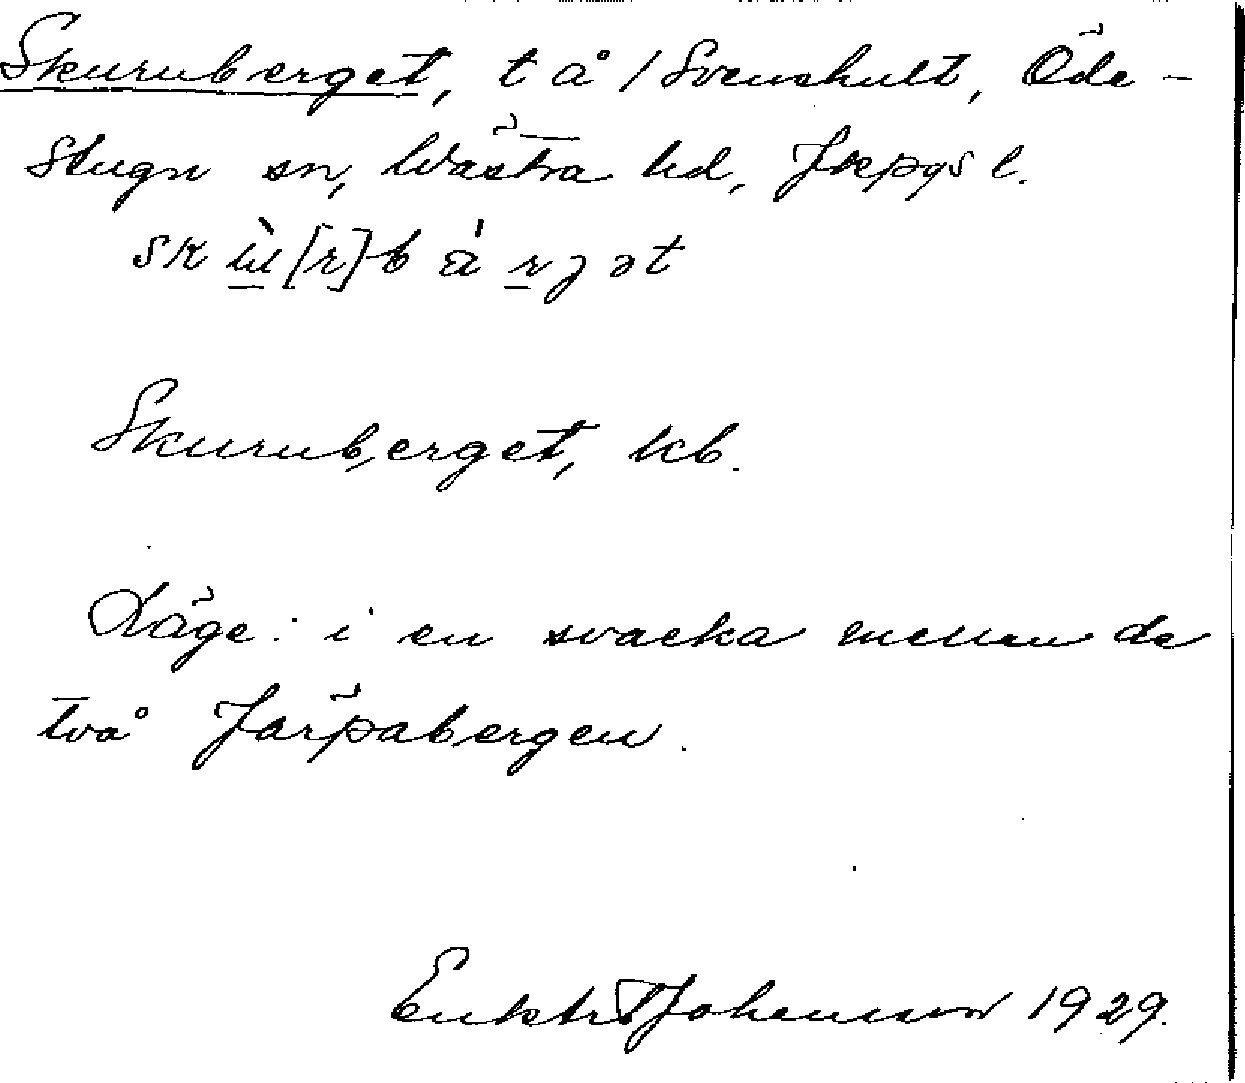 Skuruberget, t å / Svenshult, Öde-
stugu sn, Västra hd, Jkpgs l.
skɯ̀[r]bárȷət
Skuruberget, kb.
Läge: i en svacka mellan de
två Järpabergen.
Johansson 1929.